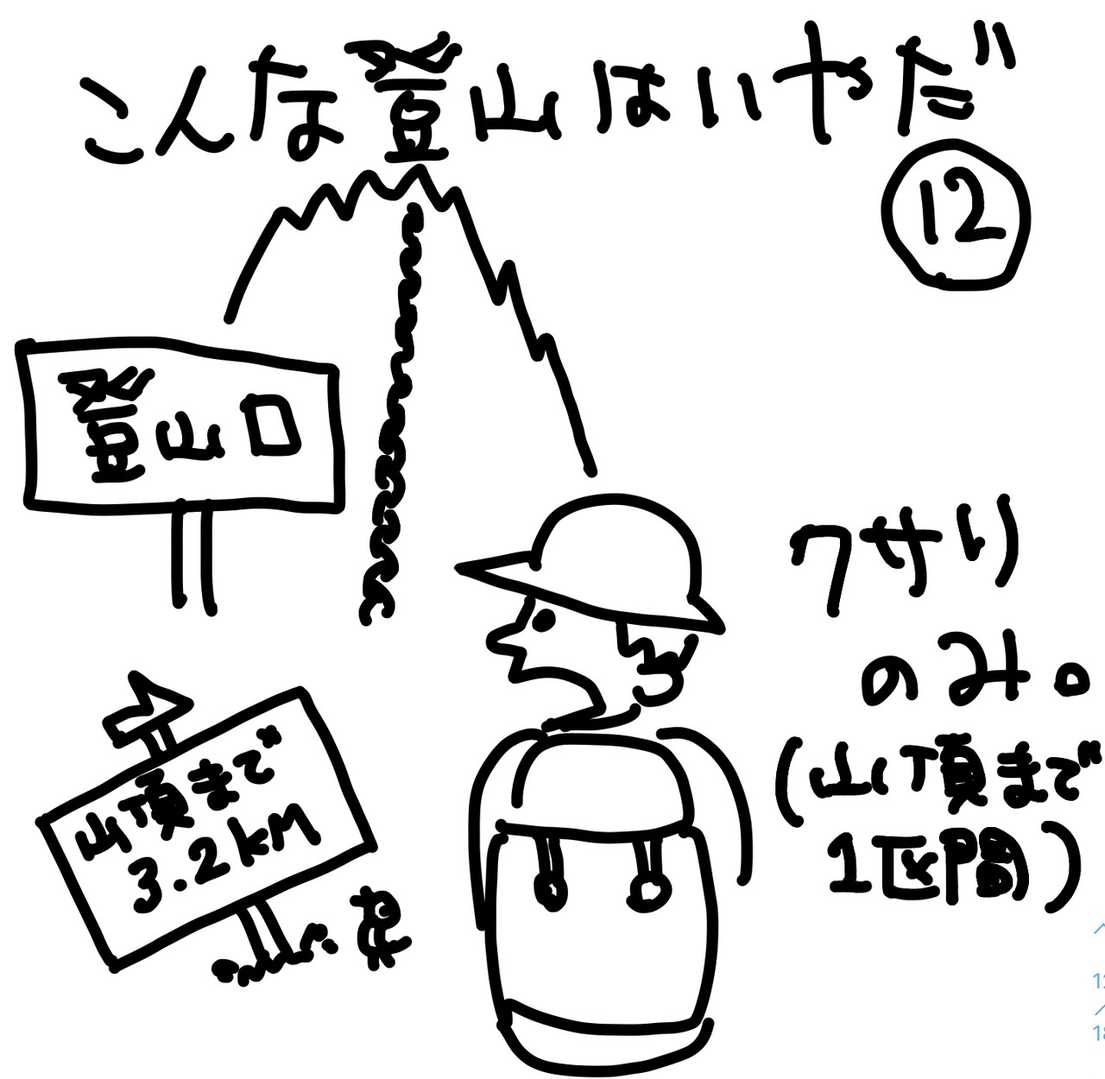 こんな登山はいやだ
⑫
登山口
クサリ
のみ。
(山頂まで
1区間)
山頂まで
3.2kM